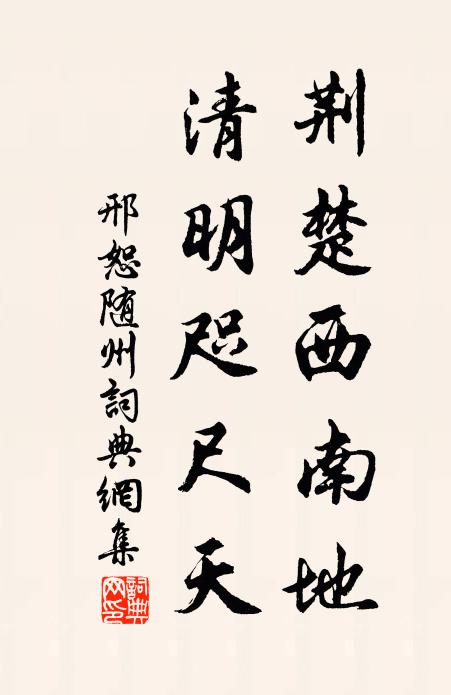 荆楚西南地
清明咫尺天
邢恕随州詞典網集
詞典網印